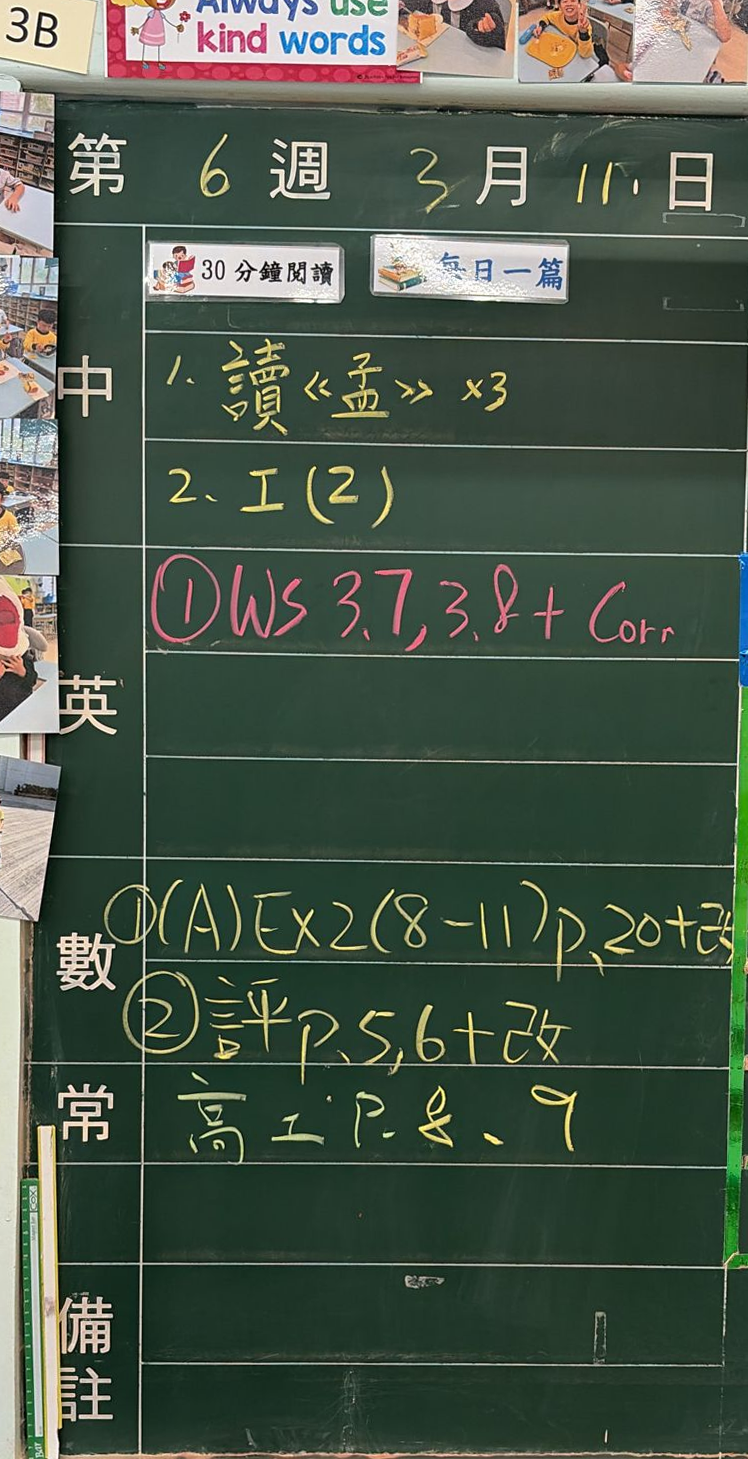 3B
Always use
kind words
第 6 週 3 月 11 日
30 分鐘閱讀 每日一篇
中
1. 讀《孟》 x3
2、工(2)
英
①WS 3.7, 3.8 + Corr
數
①(A) Ex2(8-11) p.20+改
②評 p.5,6+改
常
高工 P.8、9
備註